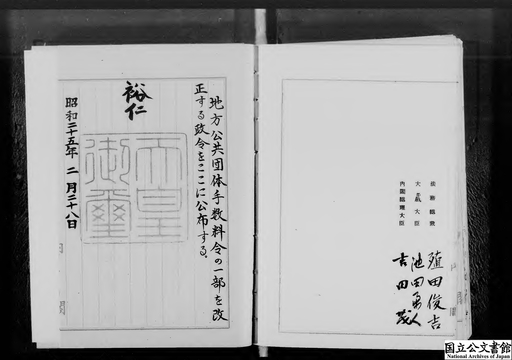 地方公共団体手数料令の一部を改
正する政令をここに公布する。
裕仁
昭和二十五年二月二十八日
天皇
御璽
大蔵大臣
内閣総理大臣
殖田俊吉
池田勇人
吉田茂
国立公文書館
National Archives of Japan